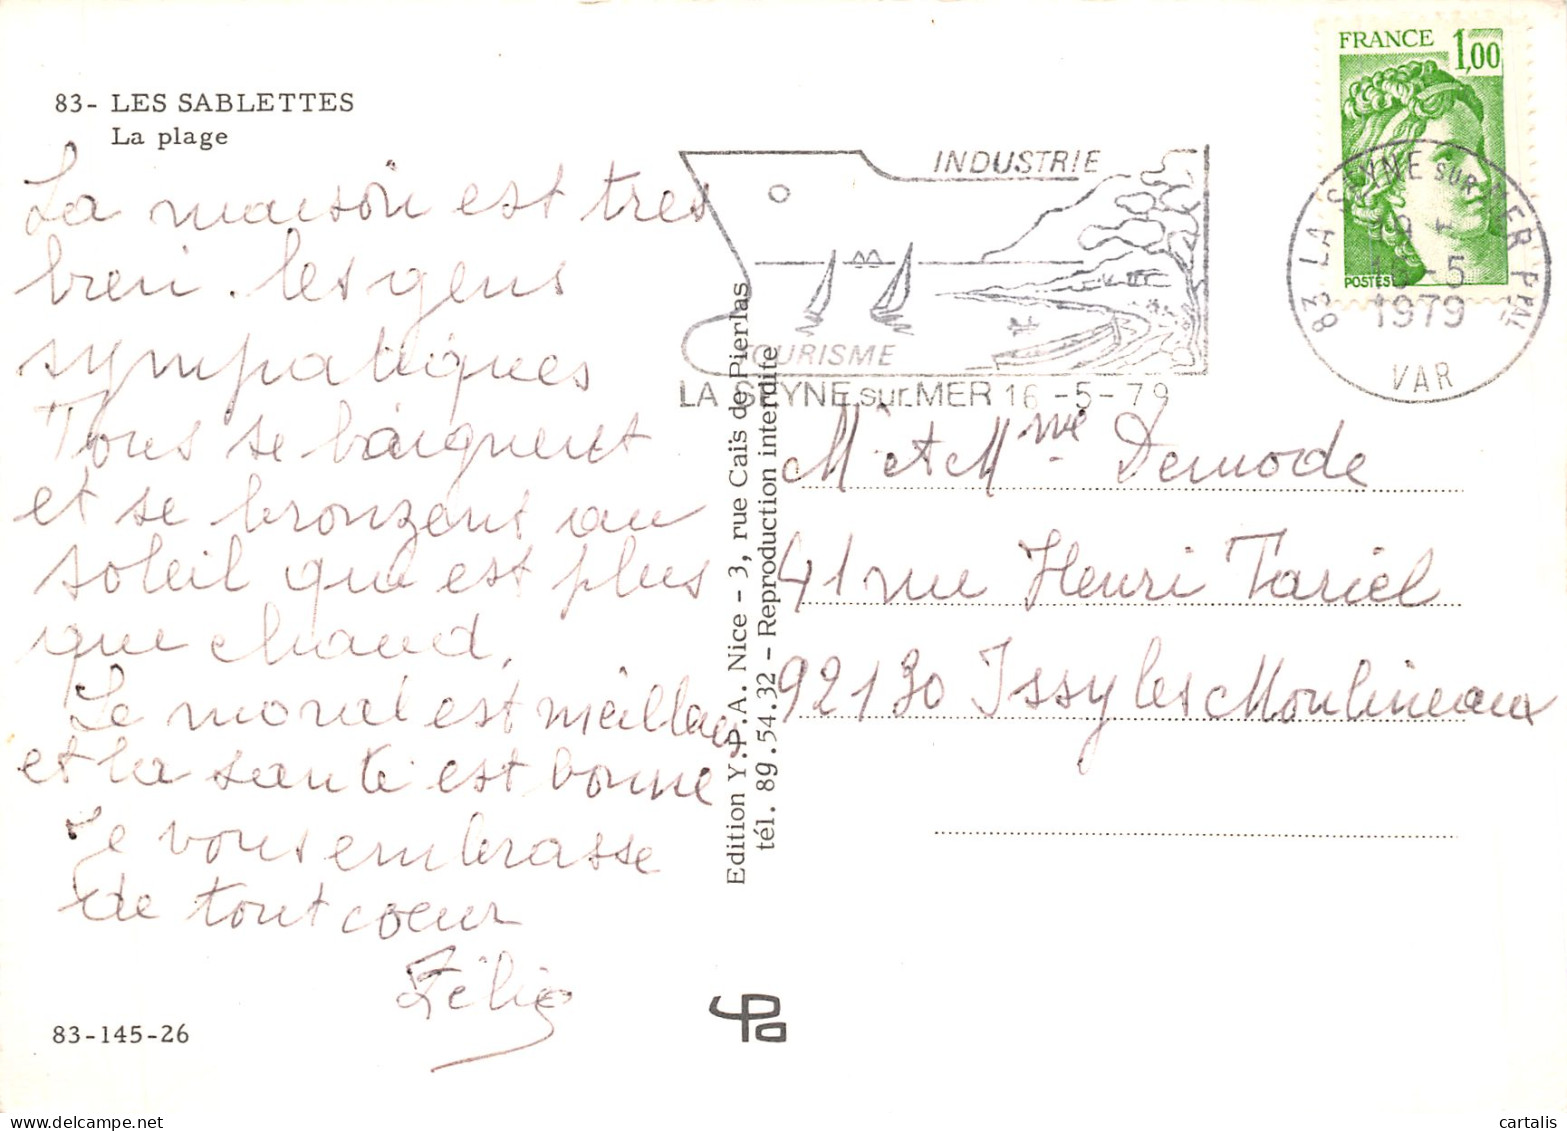 83- LES SABLETTES
La plage
La maison est tres
bien. les gens
sympatiques
Tous se baignent
et se bronzent au
soleil qui est plus
que chaud.
Le moral est meilleur
et la santé est bonne
Je vous embrasse
de tout coeur
83-145-26
Edition Y.P.A. Nice - 3, rue Caïs de Pierlas
tél. 89.54.32 - Reproduction interdite
INDUSTRIE
TOURISME
LA SEYNE sur MER 16 -5-79
FRANCE 1,00
POSTES
83 LA SEYNE SUR MER PPAL
16-5
1979
VAR
Mr et Mme Demode
41 rue Henri Tariel
92130 Issy les Moulineaux
cartalis